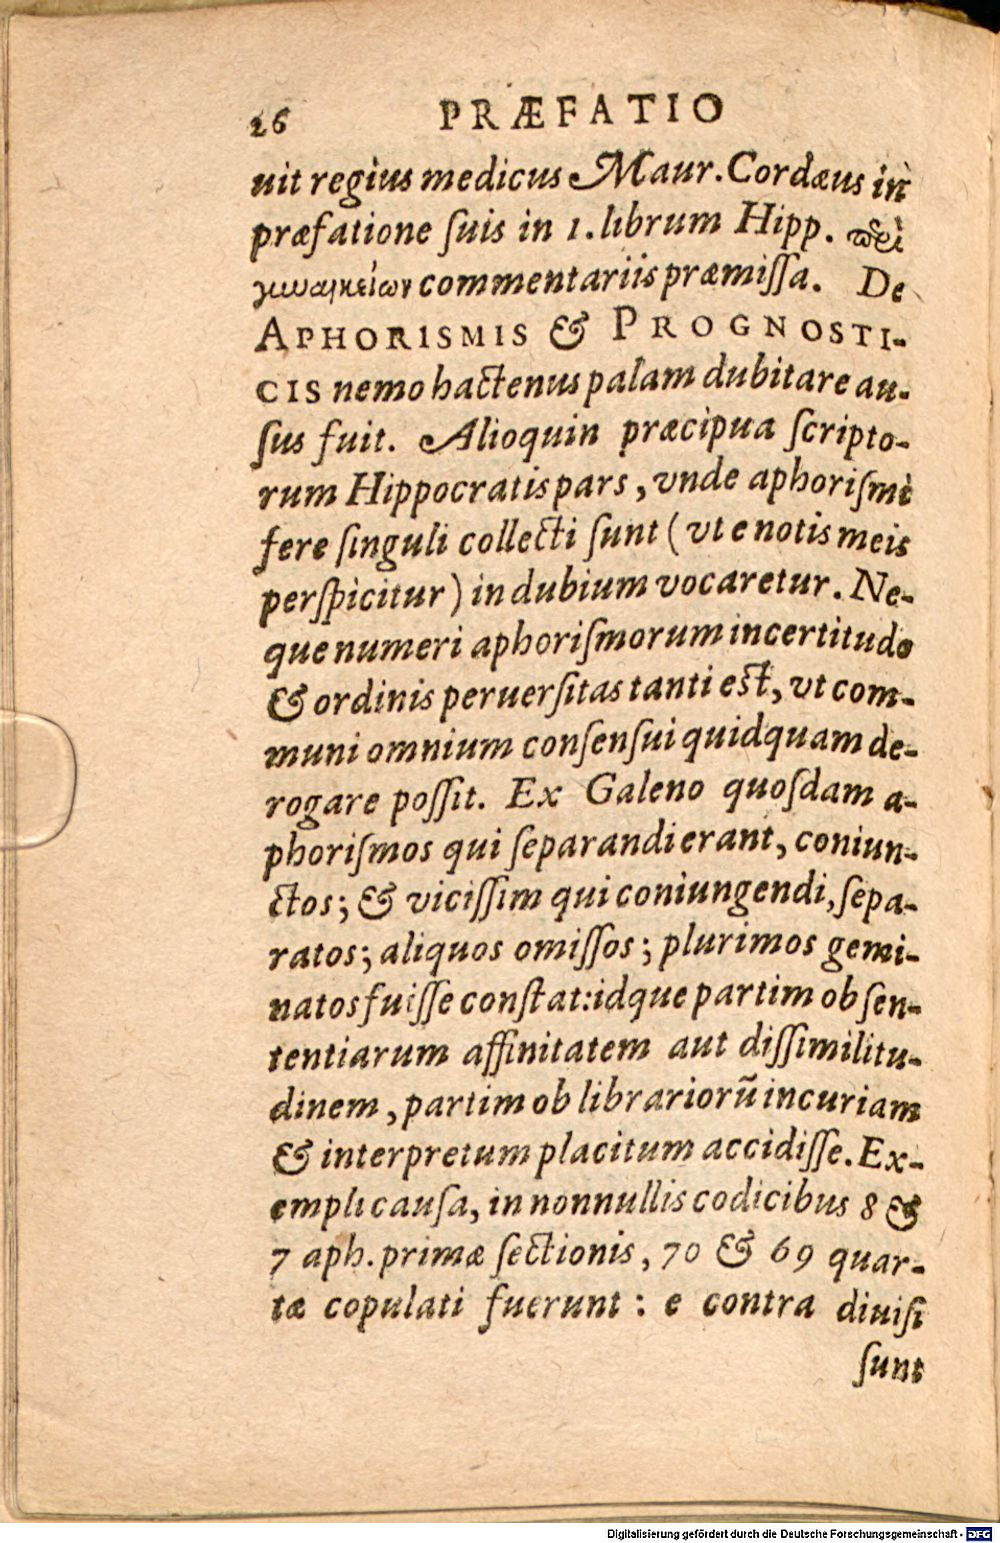 26 PRÆFATIO
uit regius medicus Maur. Cordæus in
præfatione ſuis in 1. librum Hipp. περὶ
γυναικείων commentariis præmiſſa. De
APHORISMIS & PROGNOSTI-
CIS nemo hactenus palam dubitare au-
ſus fuit. Alioquin præcipua ſcripto-
rum Hippocratis pars, vnde aphoriſmi
fere ſinguli collecti ſunt (vt e notis meis
perſpicitur) in dubium vocaretur. Ne-
que numeri aphoriſmorum incertitudo
& ordinis peruerſitas tanti eſt, vt com-
muni omnium conſenſui quidquam de-
rogare poſſit. Ex Galeno quoſdam a-
phoriſmos qui ſeparandi erant, coniun-
ctos; & viciſſim qui coniungendi, ſepa-
ratos; aliquos omiſſos; plurimos gemi-
natos fuiſſe conſtat: idque partim ob ſen-
tentiarum affinitatem aut diſſimilitu-
dinem, partim ob librariorũ incuriam
& interpretum placitum accidiſſe. Ex-
empli cauſa, in nonnullis codicibus 8 &
7 aph. primæ ſectionis, 70 & 69 quar-
tæ copulati fuerunt: e contra diuiſi
ſunt
Digitalisierung gefördert durch die Deutsche Forschungsgemeinschaft - DFG